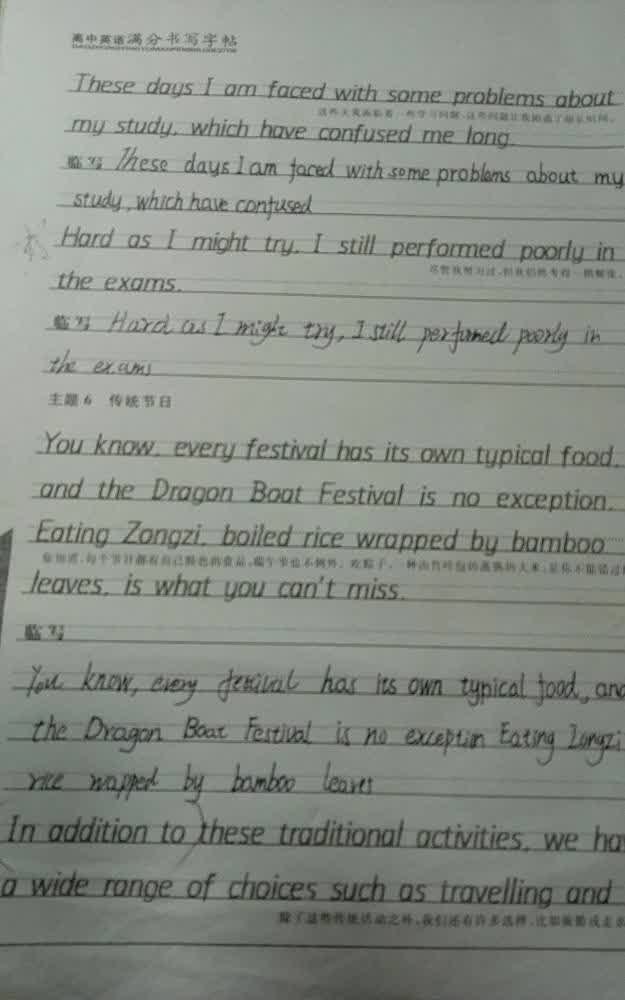 高中英语满分书写字帖
These days I am faced with some problems about
my study, which have confused me long.
临写 These days I am faced with some problems about my
study, which have confused
Hard as I might try, I still performed poorly in
the exams.
临写 Hard as I might try, I still performed poorly in
the exams
主题6 传统节日
You know, every festival has its own typical food,
and the Dragon Boat Festival is no exception.
Eating Zongzi, boiled rice wrapped by bamboo
leaves, is what you can't miss.
临写
You know, every festival has its own typical food, and
the Dragon Boat Festival is no exception Eating Zongzi
rice wapped by bamboo leaves
In addition to these traditional activities, we ha
a wide range of choices such as travelling and
除了这些传统活动之外,我们还有许多选择,比如旅游或走亲